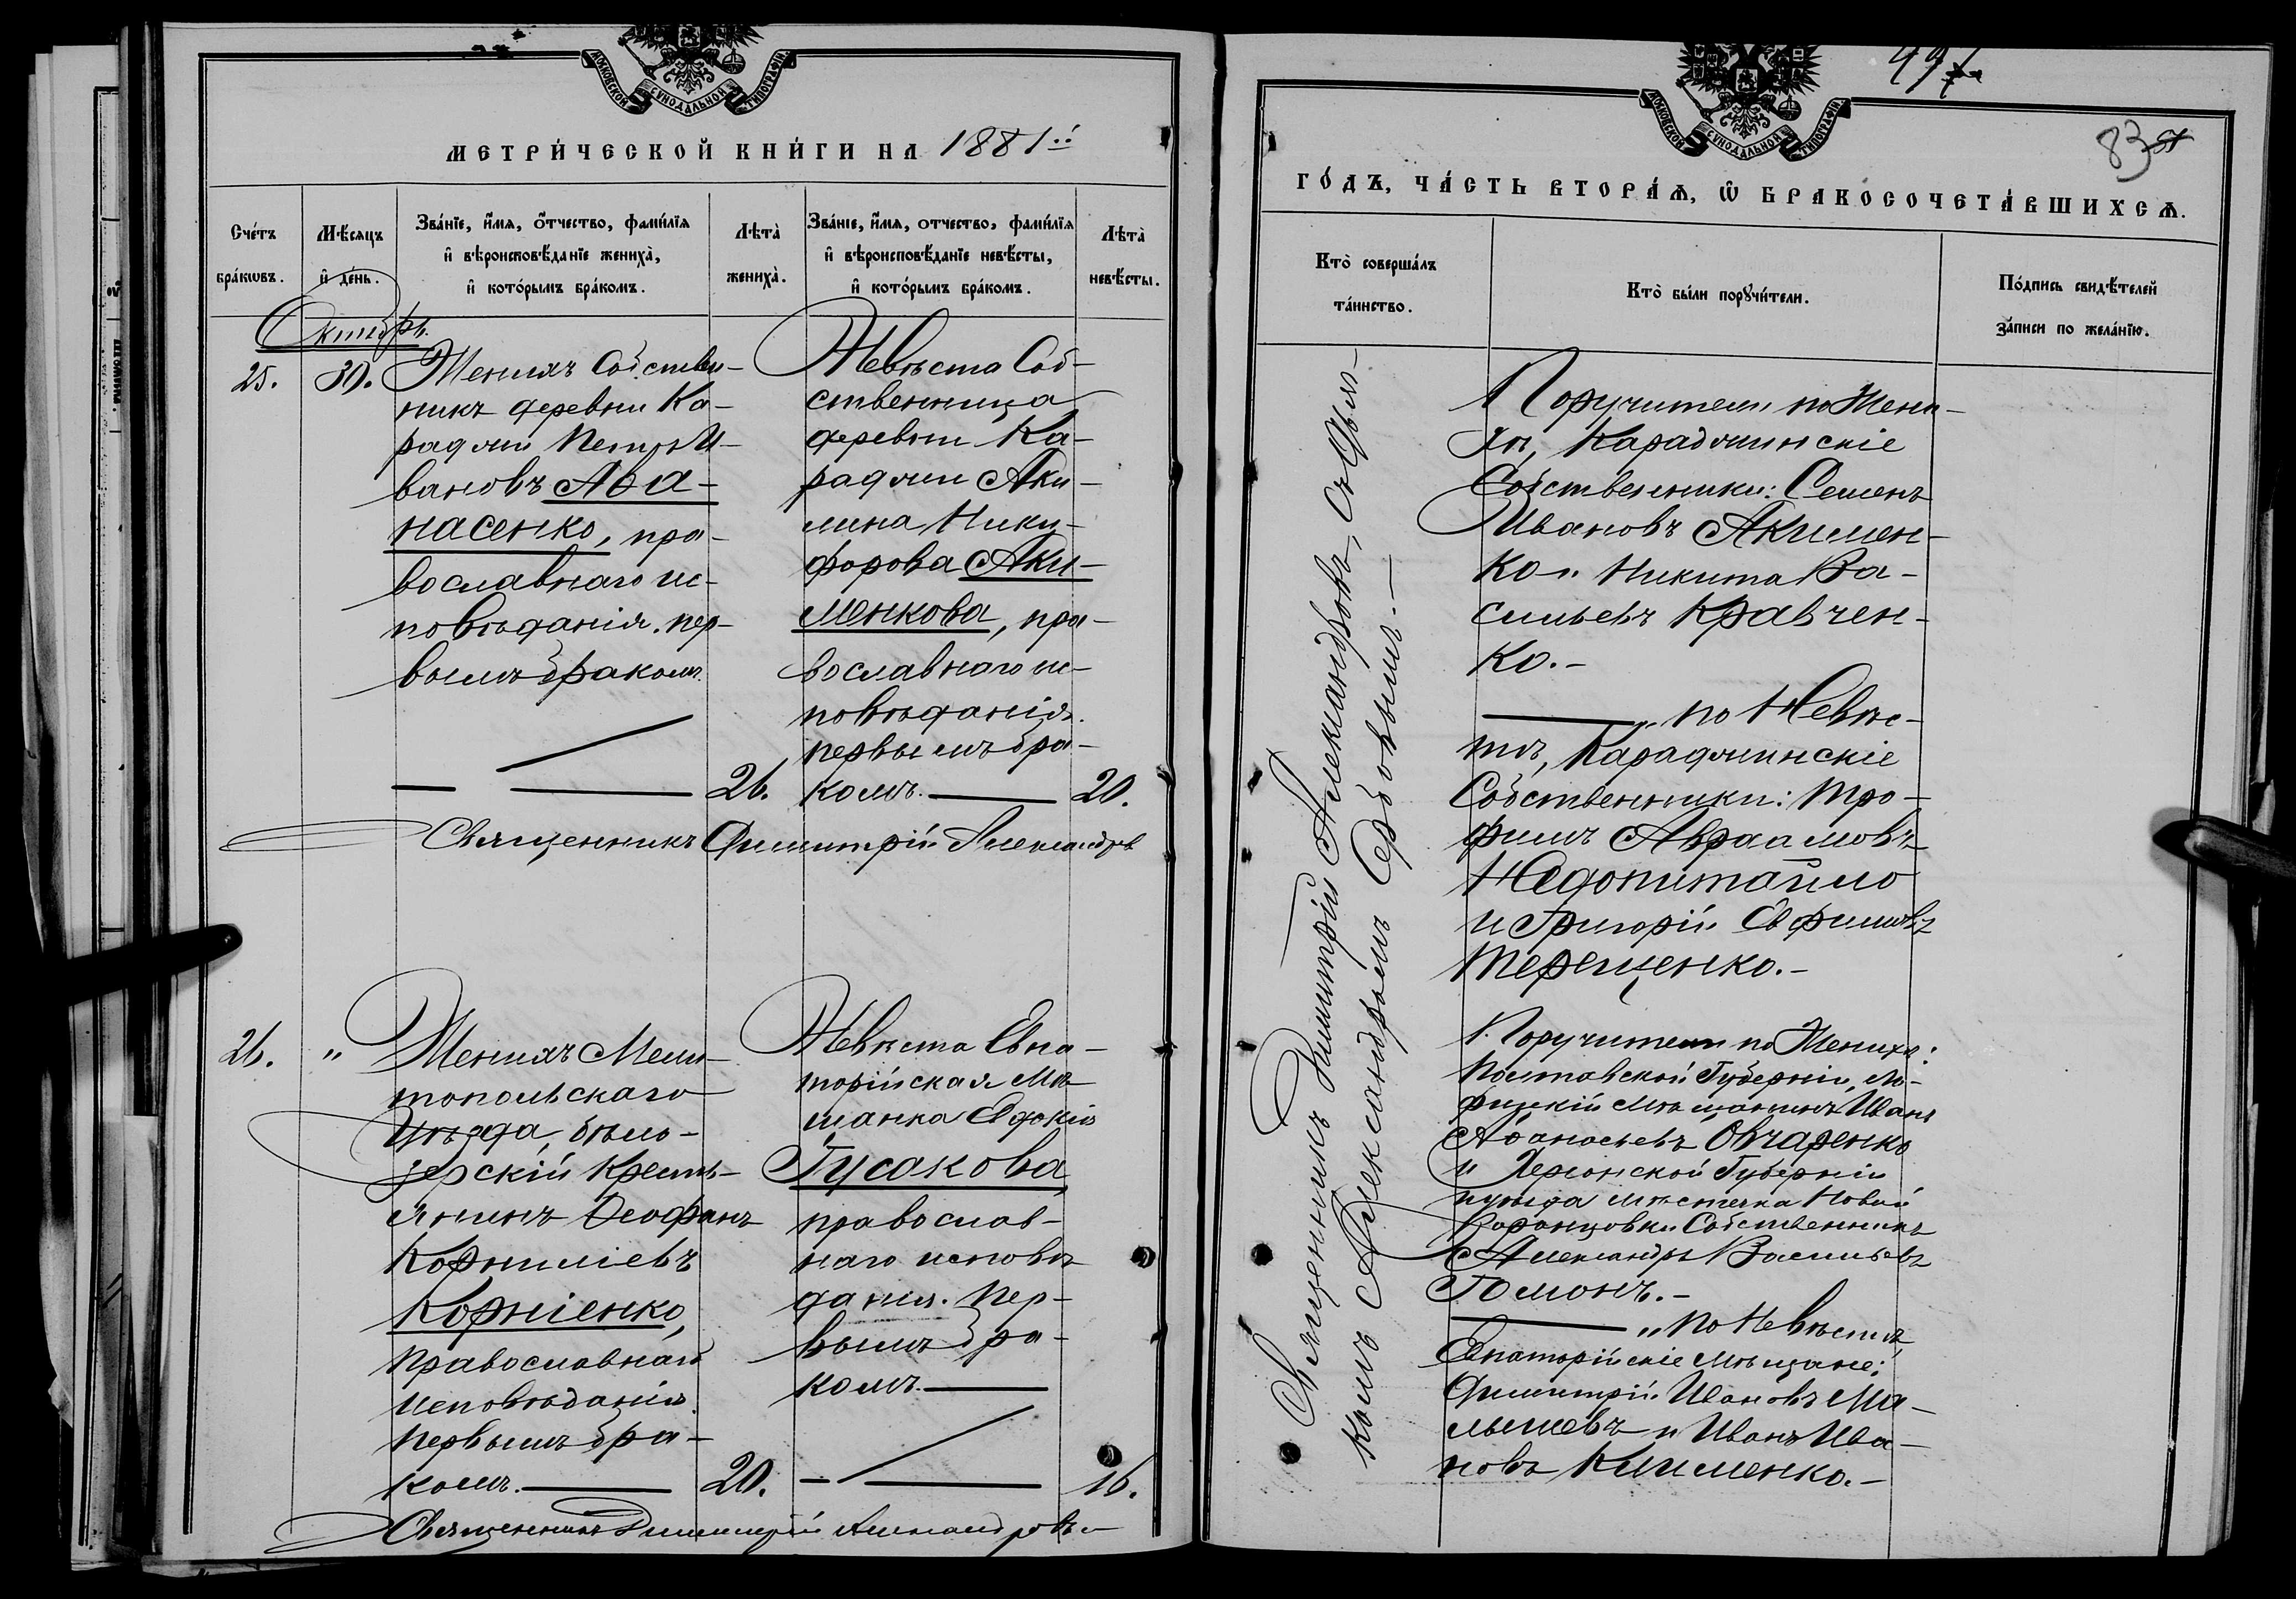 МОСКОВСКОЙ СѴНОДАЛЬНОЙ ТИПОГРАФІИ.
МЕТРИ́ЧЕСКОЙ КНИ́ГИ НА 1881й
Сче́тъ бра́кωвъ.
Мѣ́сяцъ и҆ де́нь.
Зва́нїе, и҆́мѧ, ѻ҆́тчество, фами́лїѧ
и҆ вѣроисповѣ́данїе жениха̀,
и҆ кото́рымъ бра́комъ.
Лѣта̀ жениха̀.
Зва́нїе, и҆́мѧ, ѻтчество, фами́лїѧ
и҆ вѣроисповѣ́данїе невѣ́сты,
и҆ кото́рымъ бра́комъ.
Лѣта̀ невѣ́сты.
Октябрь.
25.
30.
Женихъ Собствен-
никъ деревни Ка-
раджи Петръ И-
вановъ Аѳа-
насенко, пра-
вославнаго ис-
повѣданія. пер-
вымъ бракомъ.
26.
Невѣста Соб-
ственница
деревни Ка-
раджи Аки-
лина Ники-
форова Аки-
менкова, пра-
вославнаго ис-
повѣданія.
первымъ бра-
комъ.
20.
Священникъ Димитрій Александровъ
26.
"
Женихъ Мели-
топольскаго
Уѣзда, бѣло-
зерскій Кресть-
янинъ Ѳеофанъ
Корниліевъ
Корніенко,
православнаго
исповѣданія.
Первымъ бра-
комъ.
20.
Невѣста Евпа-
торійская Мѣ-
щанка Евдокія
Гусакова,
православ-
наго исповѣ-
данія. Пер-
вымъ бра-
комъ.
16.
Священникъ Димитрій Александровъ
МОСКОВСКОЙ СѴНОДАЛЬНОЙ ТИПОГРАФІИ.
83
ГО́ДЪ, ЧА́СТЬ ВТОРА́Ѧ, Ѡ҆ БРАКОСОЧЕТА́ВШИХСѦ.
Кто̀ соверша́лъ
та́инство.
Кто̀ бы́ли порꙋчи́тели.
По́дпись свидѣ́телей
за́писи по жела́нїю.
Священникъ Димитрій Александровъ, съ Псалом-
комъ Александромъ Сербовымъ.
Поручители по Жени-
хѣ, Караджинскіе
Собственники: Семенъ
Ивановъ Акимен-
ко и Никита Ва-
сильевъ Кравчен-
ко.-
" по Невѣс-
тѣ, Караджинскіе
Собственники: Тро-
фимъ Авраамовъ
Недопитайло
и Григорій Евфимовъ
Терещенко.-
Поручители по Женихѣ:
Полтавской Губерніи,
мѣщанинъ Иванъ
Аѳанасьевъ Овчаренко
и Херсонской Губерніи
мѣстечка Новой
Воронцовки Собственникъ
Александръ Васильевъ
Гомонъ.-
" по Невѣстѣ,
Евпаторійскіе мѣщане:
Димитрій Ивановъ Ма-
лышевъ и Иванъ Ива-
новъ Клименко.-